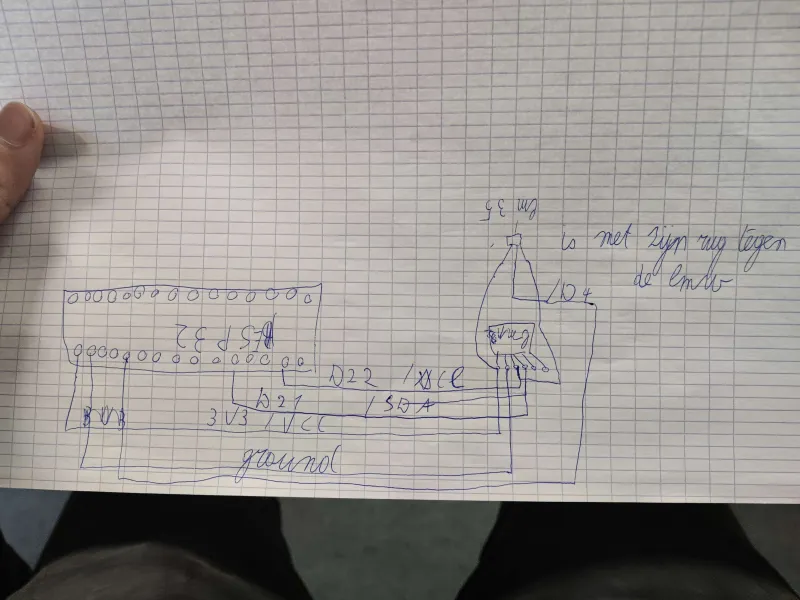 lm 35
is met zijn rug tegen
de bmw
/D4
ESP 32
bmw
D22 /SCL
D21 /SDA
3V3 /VCC
ground